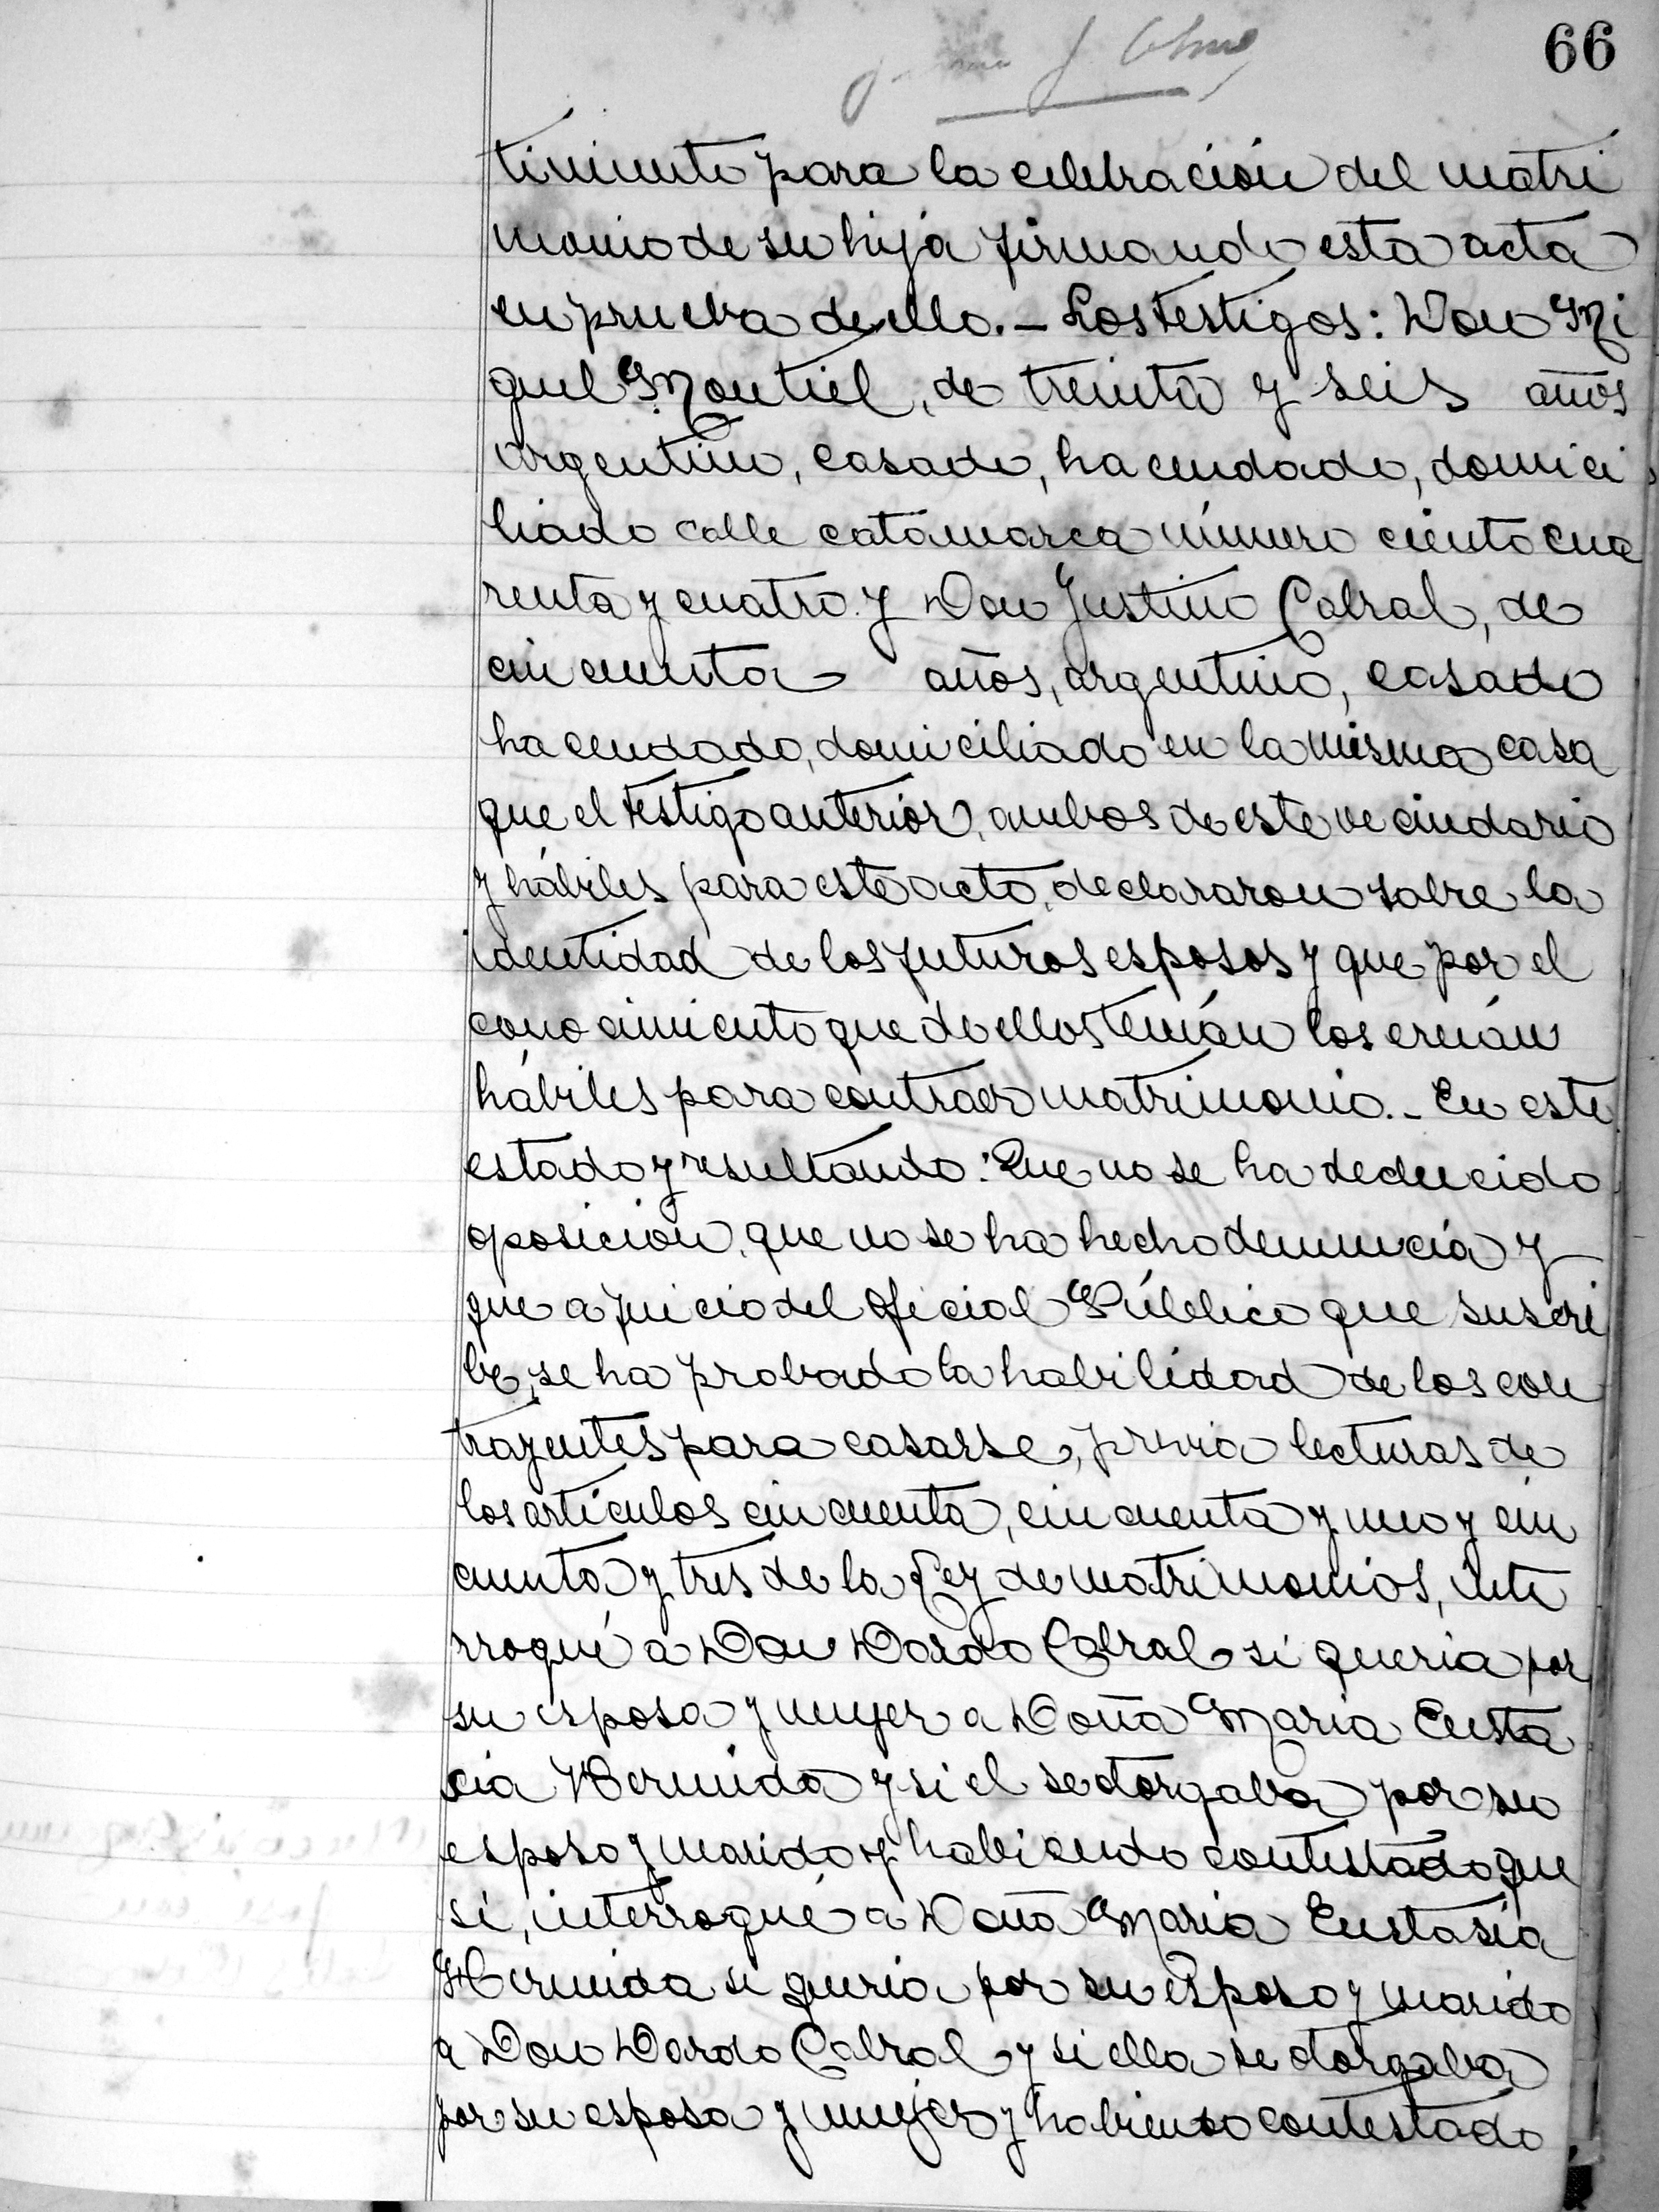 66
timiento para la celebración del matri
monio de su hija firmando esta acta
en prueba de ello.- Los testigos: Don Mi
guel Montiel, de treinta y seis años
argentino, casado, hacendado, domici
liado calle catamarca número ciento cua
renta y cuatro y Don Justino Cabral, de
cincuenta años, argentino, casado
hacendado, domiciliado en la misma casa
que el testigo anterior, ambos de este vecindario
y hábiles para este acto, declararon sobre la
identidad de los futuros esposos y que por el
conocimiento que de ellos tenían los creían
hábiles para contraer matrimonio.- En este
estado y resultando: Que no se ha deducido
oposición, que no se ha hecho denuncia y
que a juicio del Oficial Público que suscri
be, se ha probado la habilidad de los con
trayentes para casarse, previa lecturas de
los artículos cincuenta, cincuenta y uno y cin
cuenta y tres de la Ley de matrimonios, inte
rrogué a Don Dardo Cabral si queria por
su esposa y mujer a Doña Maria Eusta
cia Hermida y si el se otorgaba por su
esposo y marido y habiendo contestado que
si, interrogué a Doña Maria Eustasia
Hermida si queria por su esposo y marido
a Don Dardo Cabral y si ella se otorgaba
por su esposa y mujer y habiendo contestado